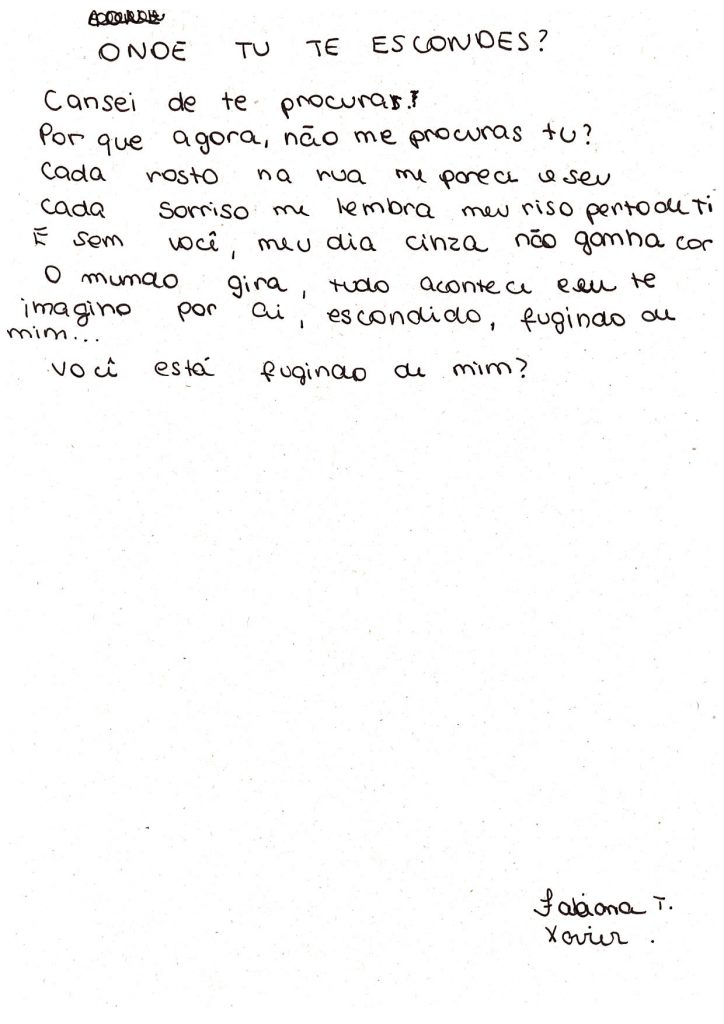 ONDE TU TE ESCONDES?
Cansei de te procurar!
Por que agora, não me procuras tu?
Cada rosto na rua me parece o seu
Cada sorriso me lembra meu riso perto de ti
E sem você, meu dia cinza não ganha cor
O mundo gira, tudo acontece e eu te
imagino por aí, escondido, fugindo de
mim...
Você está fugindo de mim?
Fabiana T.
Xavier.